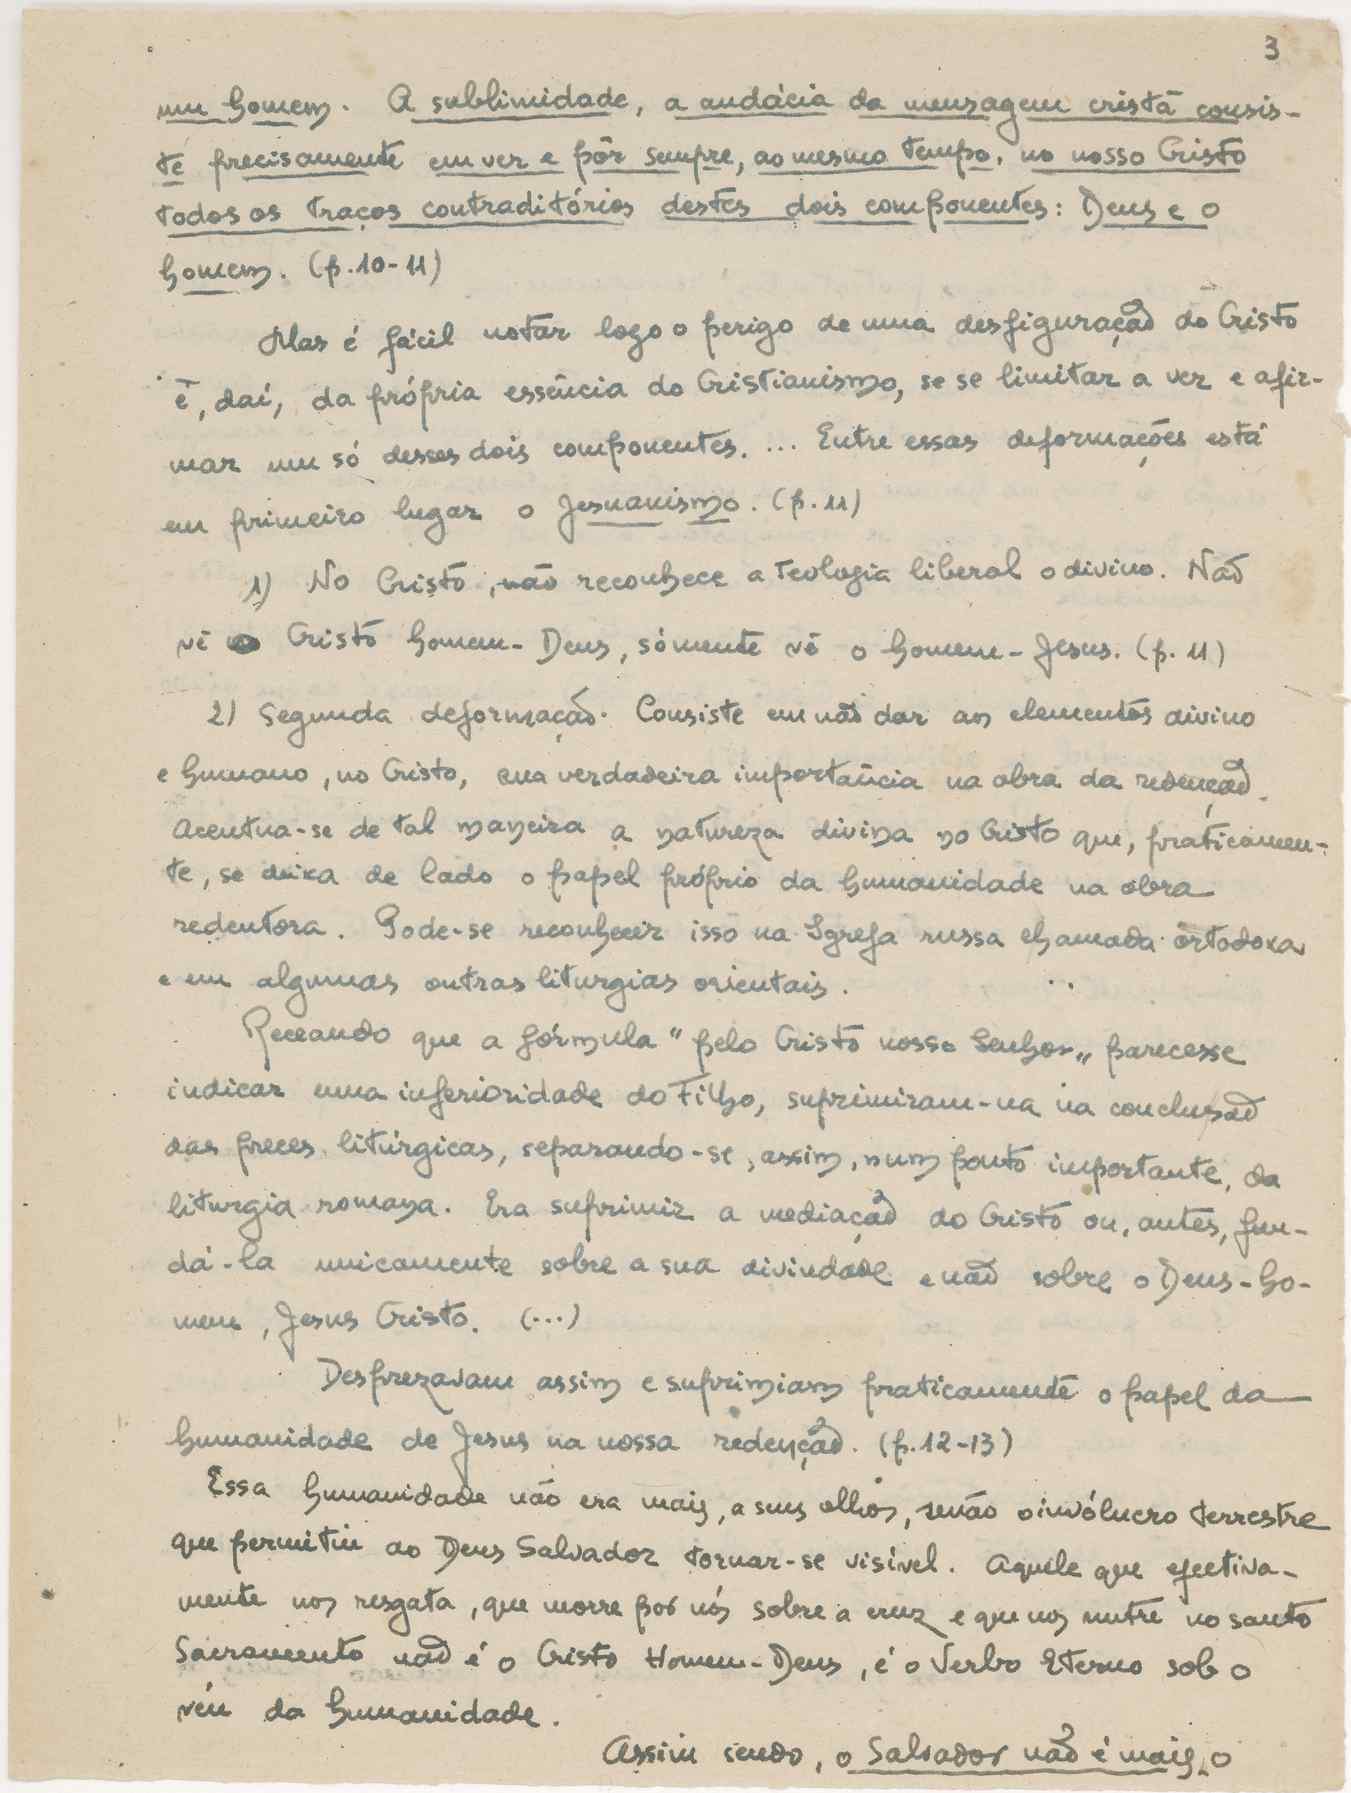 3
um homem. A sublimidade, a audácia da mensagem cristã consis-
te precisamente em ver e pôr sempre, ao mesmo tempo, no nosso Cristo
todos os traços contraditórios destes dois componentes: Deus e o
homem. (p. 10-11)
Mas é fácil notar logo o perigo de uma desfiguração do Cristo
e, daí, da própria essência do Cristianismo, se se limitar a ver e afir-
mar um só desses dois componentes. ... Entre essas deformações está
em primeiro lugar o Jesuanismo. (p. 11)
1) No Cristo, não reconhece a teologia liberal o divino. Não
vê o Cristo homem-Deus, sómente vê o homem-Jesus. (p. 11)
2) Segunda deformação. Consiste em não dar aos elementos divino
e humano, no Cristo, sua verdadeira importância na obra da redenção.
Acentua-se de tal maneira a natureza divina no Cristo que, praticamen-
te, se deixa de lado o papel próprio da humanidade na obra
redentora. Pode-se reconhecer isso na Igreja russa chamada ortodoxa
e em algumas outras liturgias orientais.
Receando que a fórmula "pelo Cristo nosso Senhor" parecesse
indicar uma inferioridade do Filho, suprimiram-na na conclusão
das preces litúrgicas, separando-se, assim, num ponto importante, da
liturgia romana. Era suprimir a mediação do Cristo ou, antes, fun-
dá-la unicamente sobre a sua divindade e não sobre o Deus-ho-
mem, Jesus Cristo. (...)
Desprezavam assim e suprimiam praticamente o papel da
humanidade de Jesus na nossa redenção. (p. 12-13)
Essa humanidade não era mais, a seus olhos, senão o invólucro terrestre
que permitiu ao Deus Salvador tornar-se visível. Aquele que efectiva-
mente nos resgata, que morre por nós sobre a cruz e que nos nutre no santo
Sacramento não é o Cristo Homem-Deus, é o Verbo Eterno sob o
véu da humanidade.
Assim sendo, o Salvador não é mais o